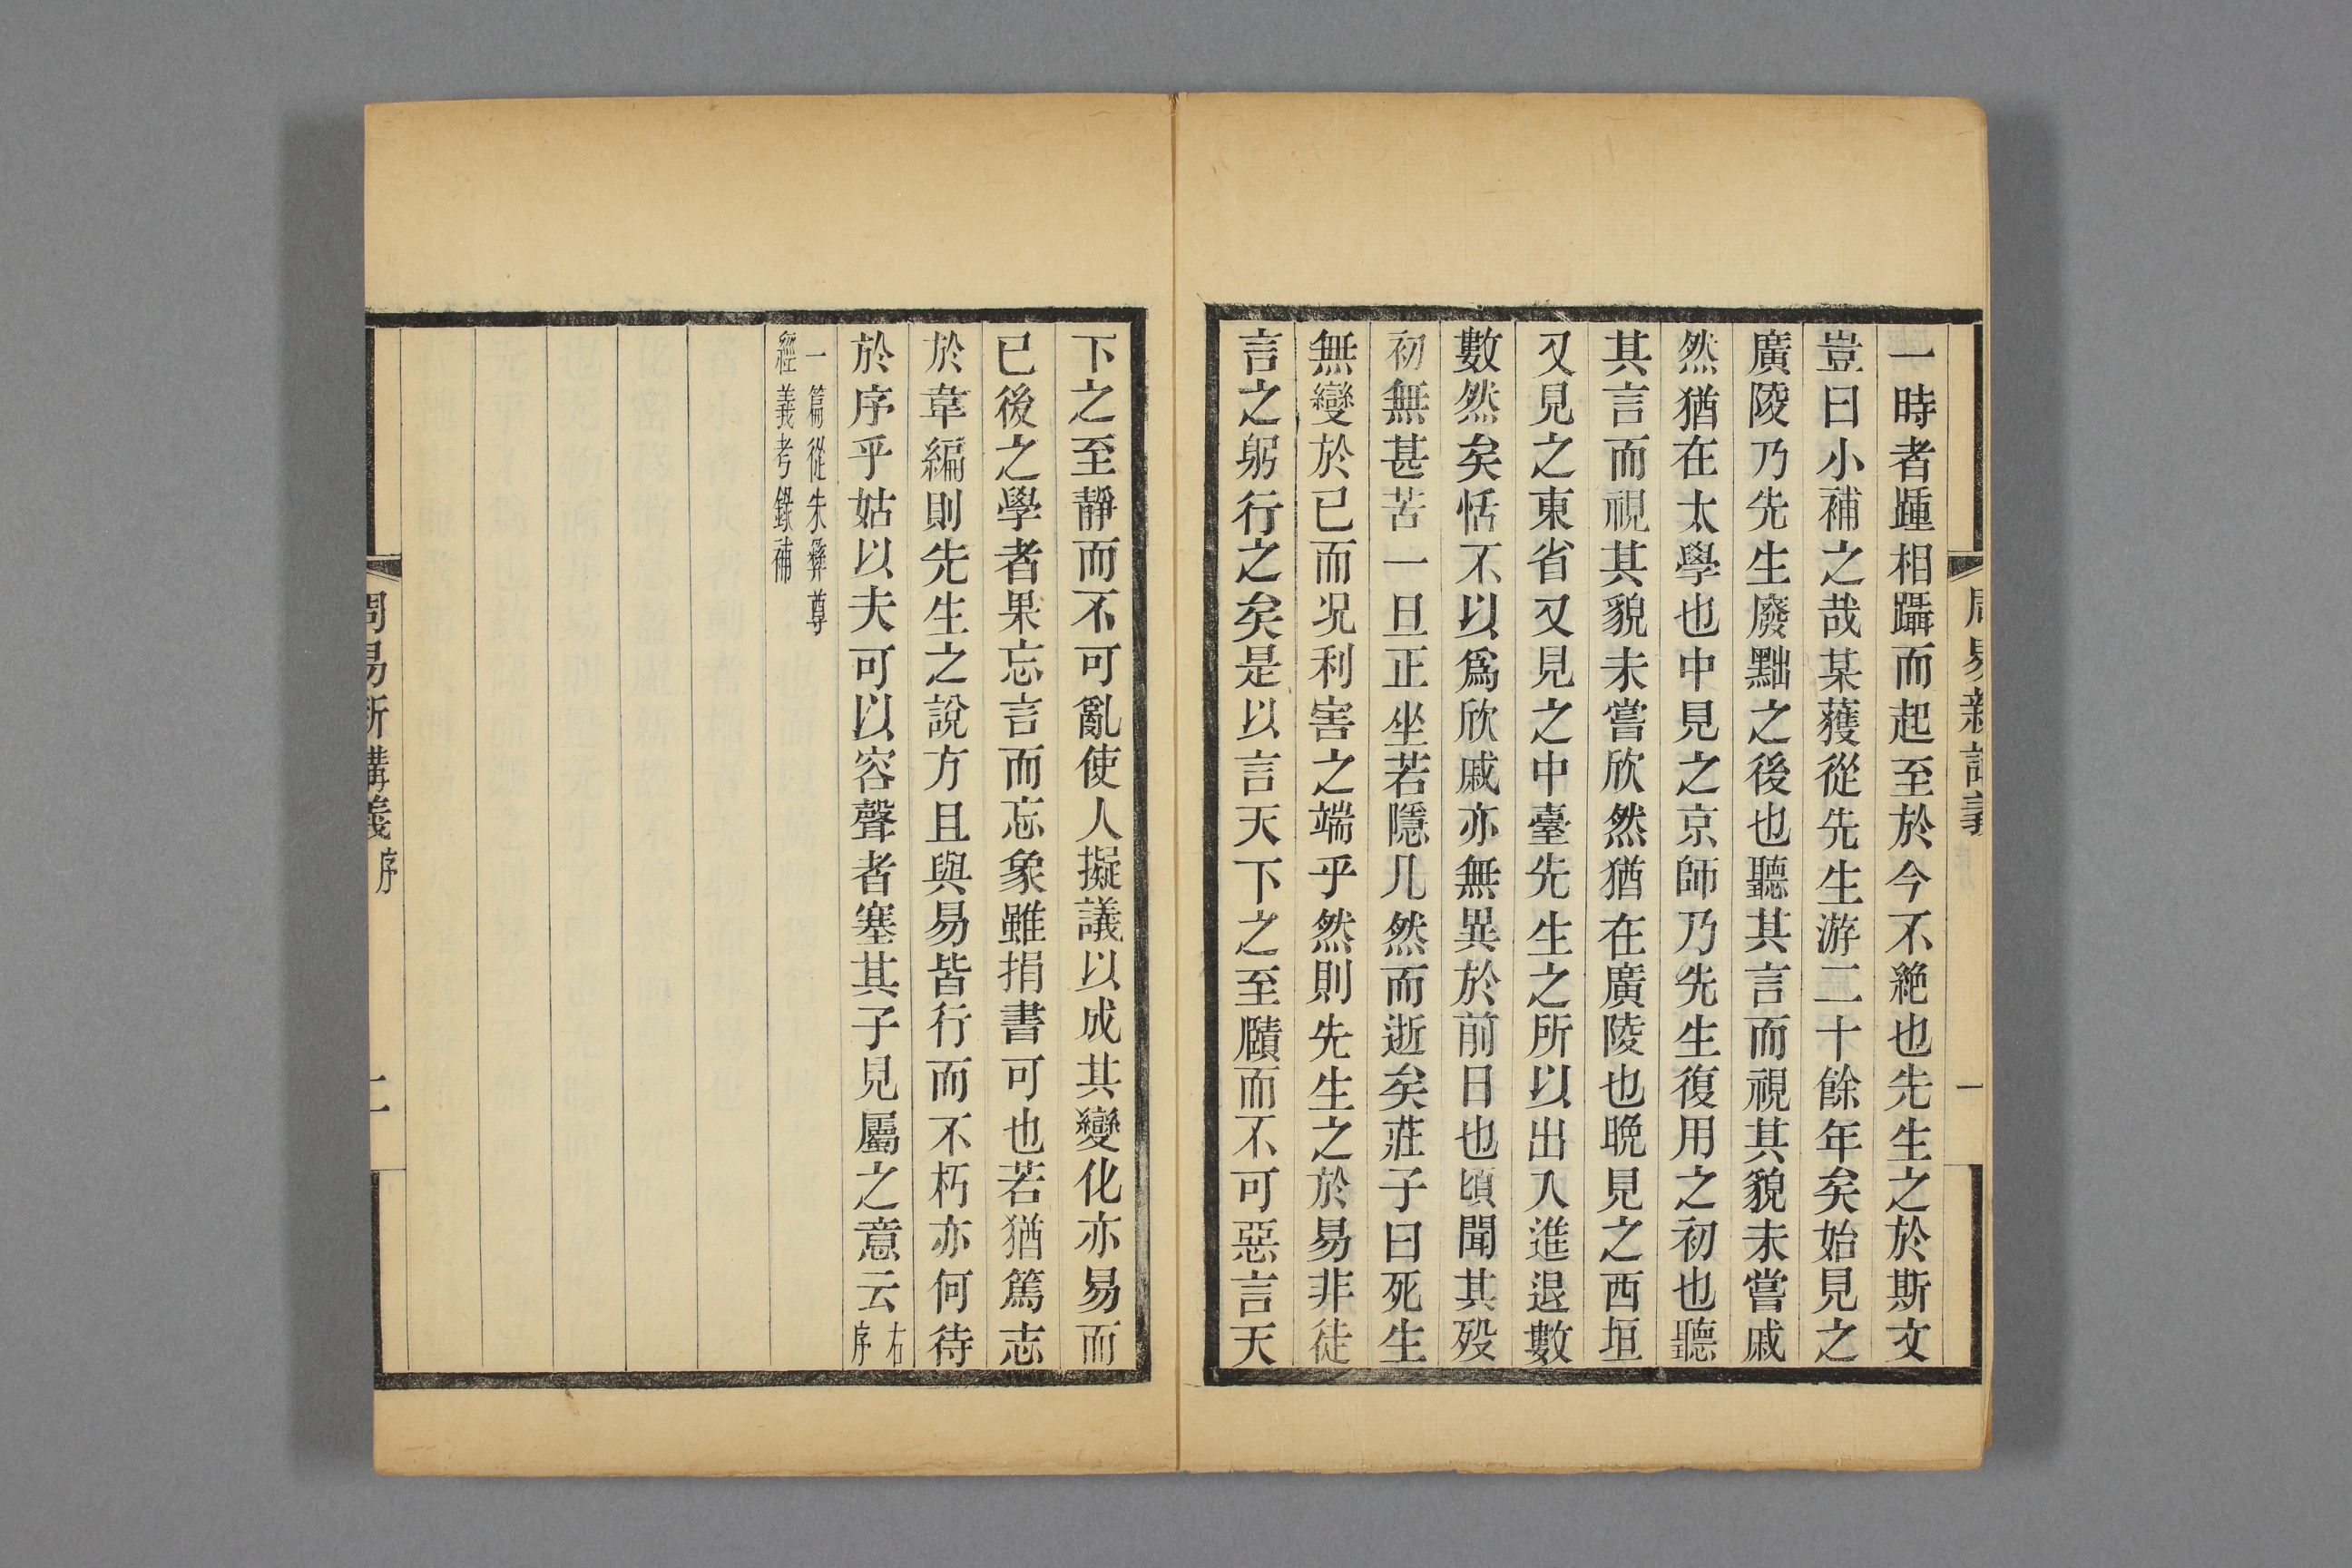 周易新講義
一
一時者踵相躡而起至於今不絶也先生之於斯文
豈曰小補之哉某獲從先生游二十餘年矣始見之
廣陵乃先生廢黜之後也聽其言而視其貌未嘗戚
然猶在太學也中見之京師乃先生復用之初也聽
其言而視其貌未嘗欣然猶在廣陵也晚見之西垣
又見之東省又見之中臺先生之所以出入進退數
數然矣恬不以爲欣戚亦無異於前日也頃聞其歿
初無甚苦一旦正坐若隱几然而逝矣莊子曰死生
無變於已而况利害之端乎然則先生之於易非徒
言之躬行之矣是以言天下之至賾而不可惡言天
下之至靜而不可亂使人擬議以成其變化亦易而
已後之學者果忘言而忘象雖捐書可也若猶篤志
於韋編則先生之說方且與易皆行而不朽亦何待
於序乎姑以夫可以容聲者塞其子見屬之意云右
序
一篇從朱彝尊
經義考錄補
周易新講義序
二